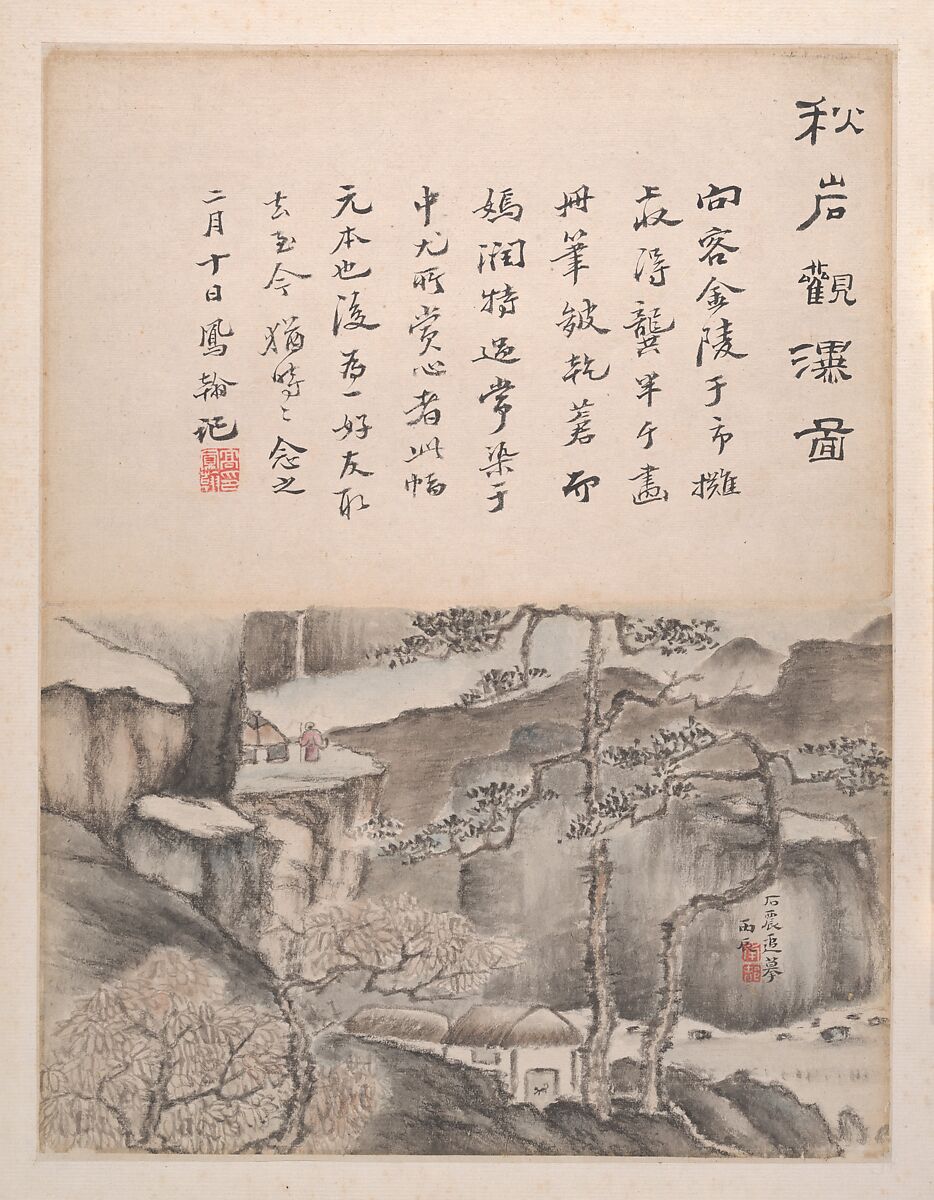 秋岩觀瀑圖
向客金陵于市攤
收得龔半千畫
冊筆皴乾蒼而
嫣潤特過常染于
中尤所賞心者此幅
元本也後為一好友取
去至今猶時〻念之
二月十日鳳翰記
高印鳳翰
石震追摹
丙辰